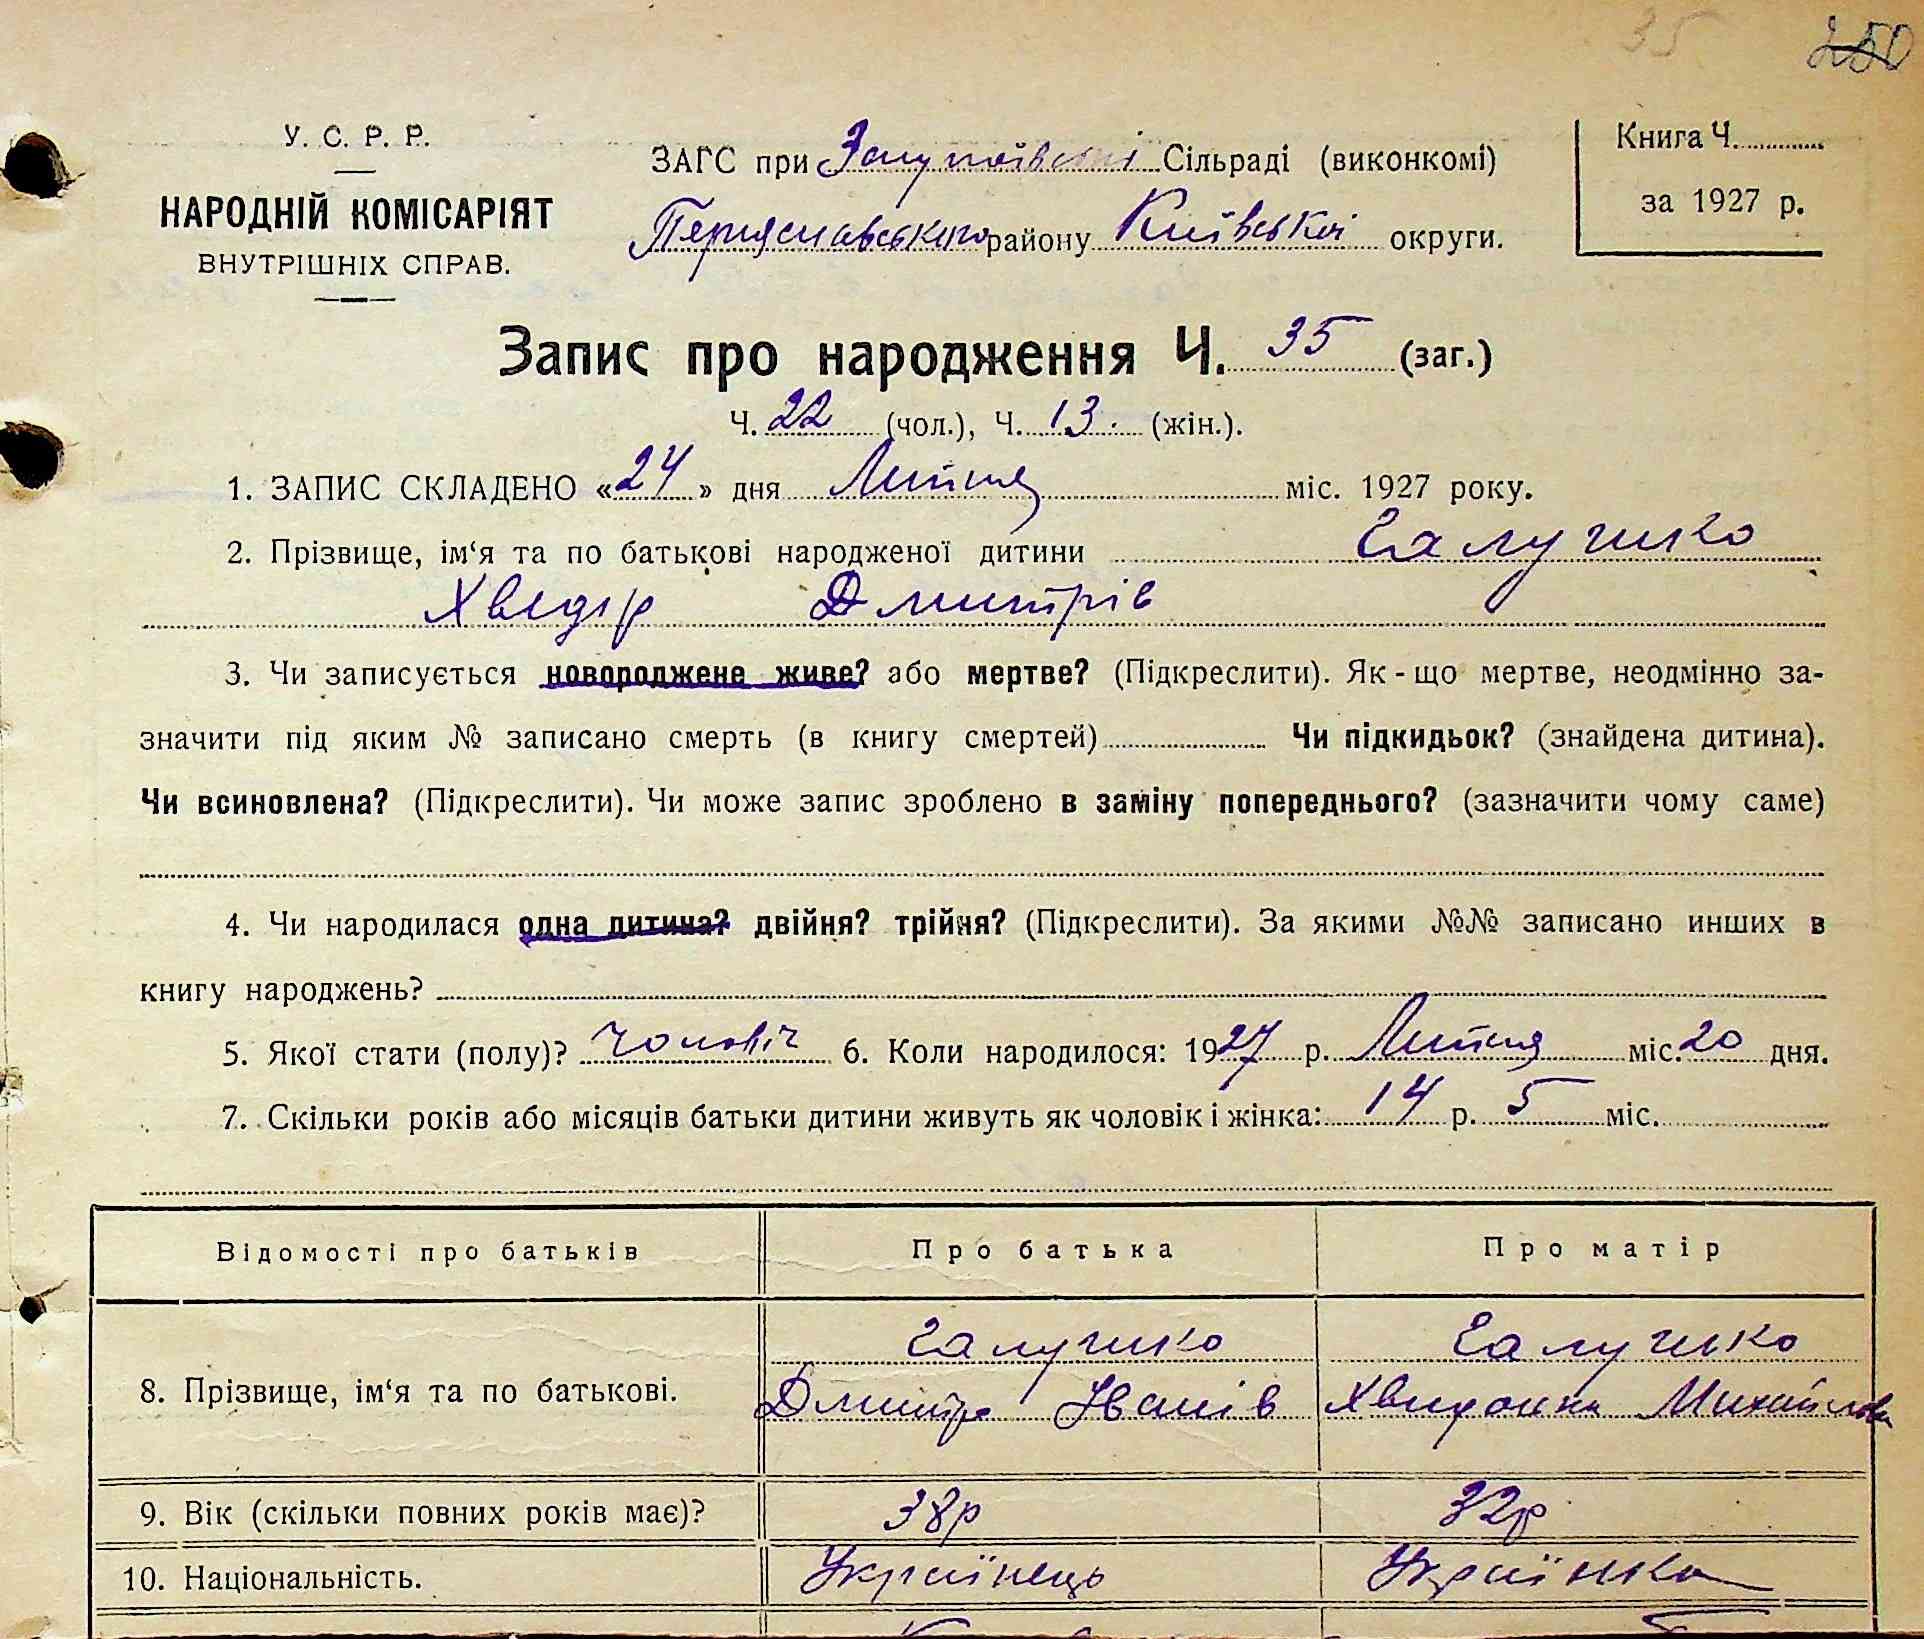 35 250
У. С. Р. Р.
НАРОДНІЙ КОМІСАРІЯТ
ВНУТРІШНІХ СПРАВ.
ЗАГС при Сільраді (виконкомі)
Переяславського району Київської округи.
Книга Ч.
за 1927 р.
Запис про народження Ч. 35 (заг.)
Ч. 22 (чол.), Ч. 13. (жін.).
1. ЗАПИС СКЛАДЕНО «24» дня Липня міс. 1927 року.
2. Прізвище, ім‘я та по батькові народженої дитини Галушко
Хведір Дмитрів
3. Чи записується новороджене живе? або мертве? (Підкреслити). Як-що мертве, неодмінно за-
значити під яким № записано смерть (в книгу смертей) Чи підкидьок? (знайдена дитина).
Чи всиновлена? (Підкреслити). Чи може запис зроблено в заміну попереднього? (зазначити чому саме)
4. Чи народилася одна дитина? двійня? трійня? (Підкреслити). За якими №№ записано инших в
книгу народжень?
5. Якої стати (полу)? Чоловіч 6. Коли народилося: 1927 р. Липня міс. 20 дня.
7. Скільки років або місяців батьки дитини живуть як чоловік і жінка: 14 р. 5 міс.
Відомості про батьків Про батька Про матір
Галушко Галушко
8. Прізвище, ім‘я та по батькові. Дмитро Іванів Михайлова
9. Вік (скільки повних років має)? 38р 32р
10. Національність. Українець Українка